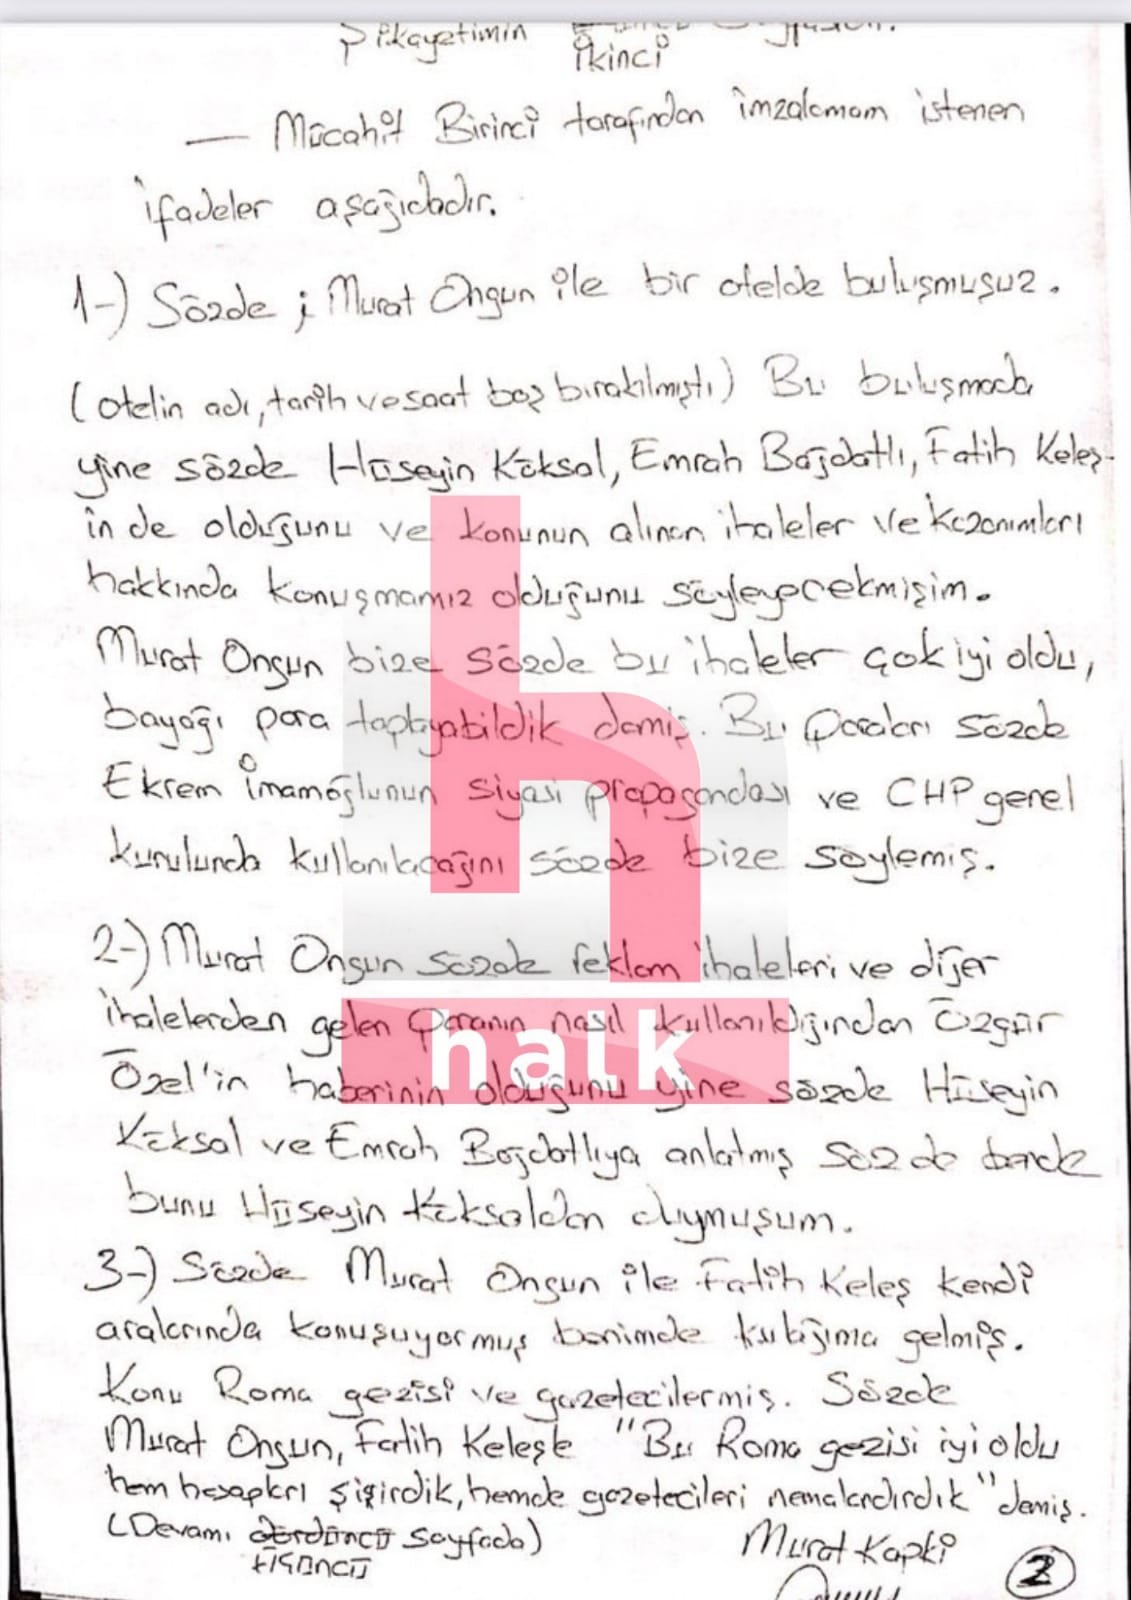 Şikayetimin
İkinci
— Mücahit Birinci tarafından imzalamam istenen
ifadeler aşağıdadır.
1-) Sözde ; Murat Ongun ile bir otelde buluşmuşuz.
(otelin adı, tarih ve saat boş bırakılmıştı) Bu buluşmada
yine sözde Hüseyin Köksal, Emrah Bağdatlı, Fatih Keleş-
in de olduğunu ve konunun alınan ihaleler ve kazanımları
hakkında konuşmamız olduğunu söyleyecekmişim.
Murat Ongun bize sözde bu ihaleler çok iyi oldu,
bayağı para toplayabildik demiş. Bu paraları sözde
Ekrem İmamoğlunun siyasi propagandası ve CHP genel
kurulunda kullanılacağını sözde bize söylemiş.
2-) Murat Ongun sözde reklam ihaleleri ve diğer
ihalelerden gelen paranın nasıl kullanıldığından Özgür
Özel'in haberinin olduğunu yine sözde Hüseyin
Köksal ve Emrah Bağdatlıya anlatmış sözde bende
bunu Hüseyin Köksaldan duymuşum.
3-) Sözde Murat Ongun ile Fatih Keleş kendi
aralarında konuşuyormuş benimde kulağıma gelmiş.
Konu Roma gezisi ve gazetecilermiş. Sözde
Murat Ongun, Fatih Keleşle "Bu Roma gezisi iyi oldu
hem hesapları şişirdik, hemde gazetecileri nemalandırdık" demiş.
(Devamı dördüncü sayfada)
üçüncü
Murat Kapki
2
halk